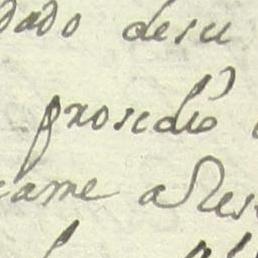 dado desu
prosedio
came a Res